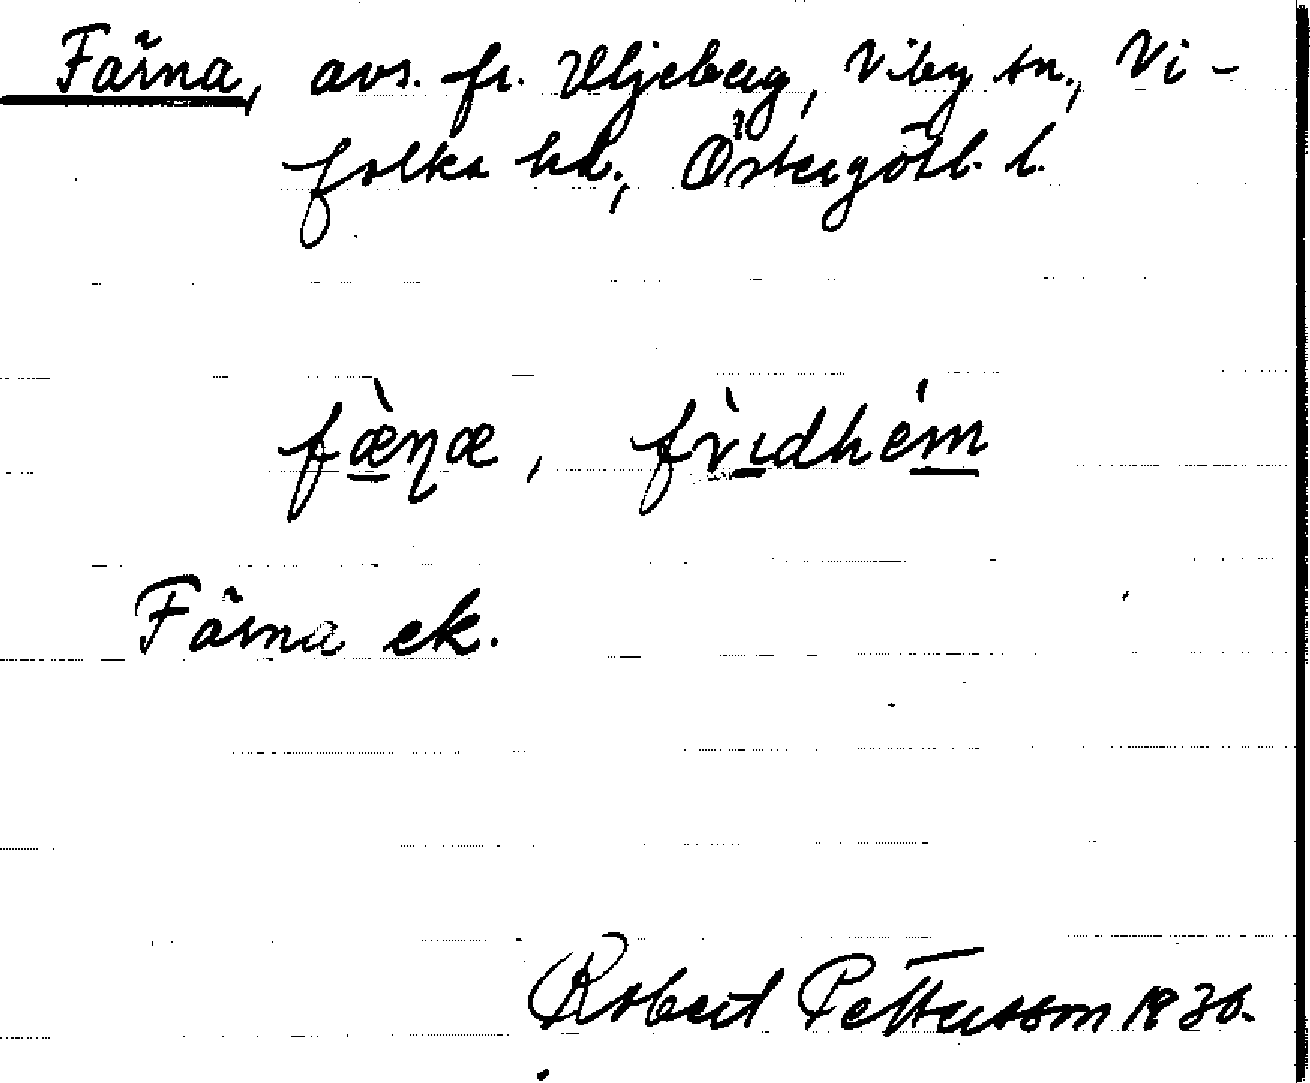 Färna, avs. fr. Uljeberg, Viby sn., Vi-
folka hd., Östergötl. l.
fæ̀ɳæ, frìdhém
Färna ek.
Robert Pettersson 1930.